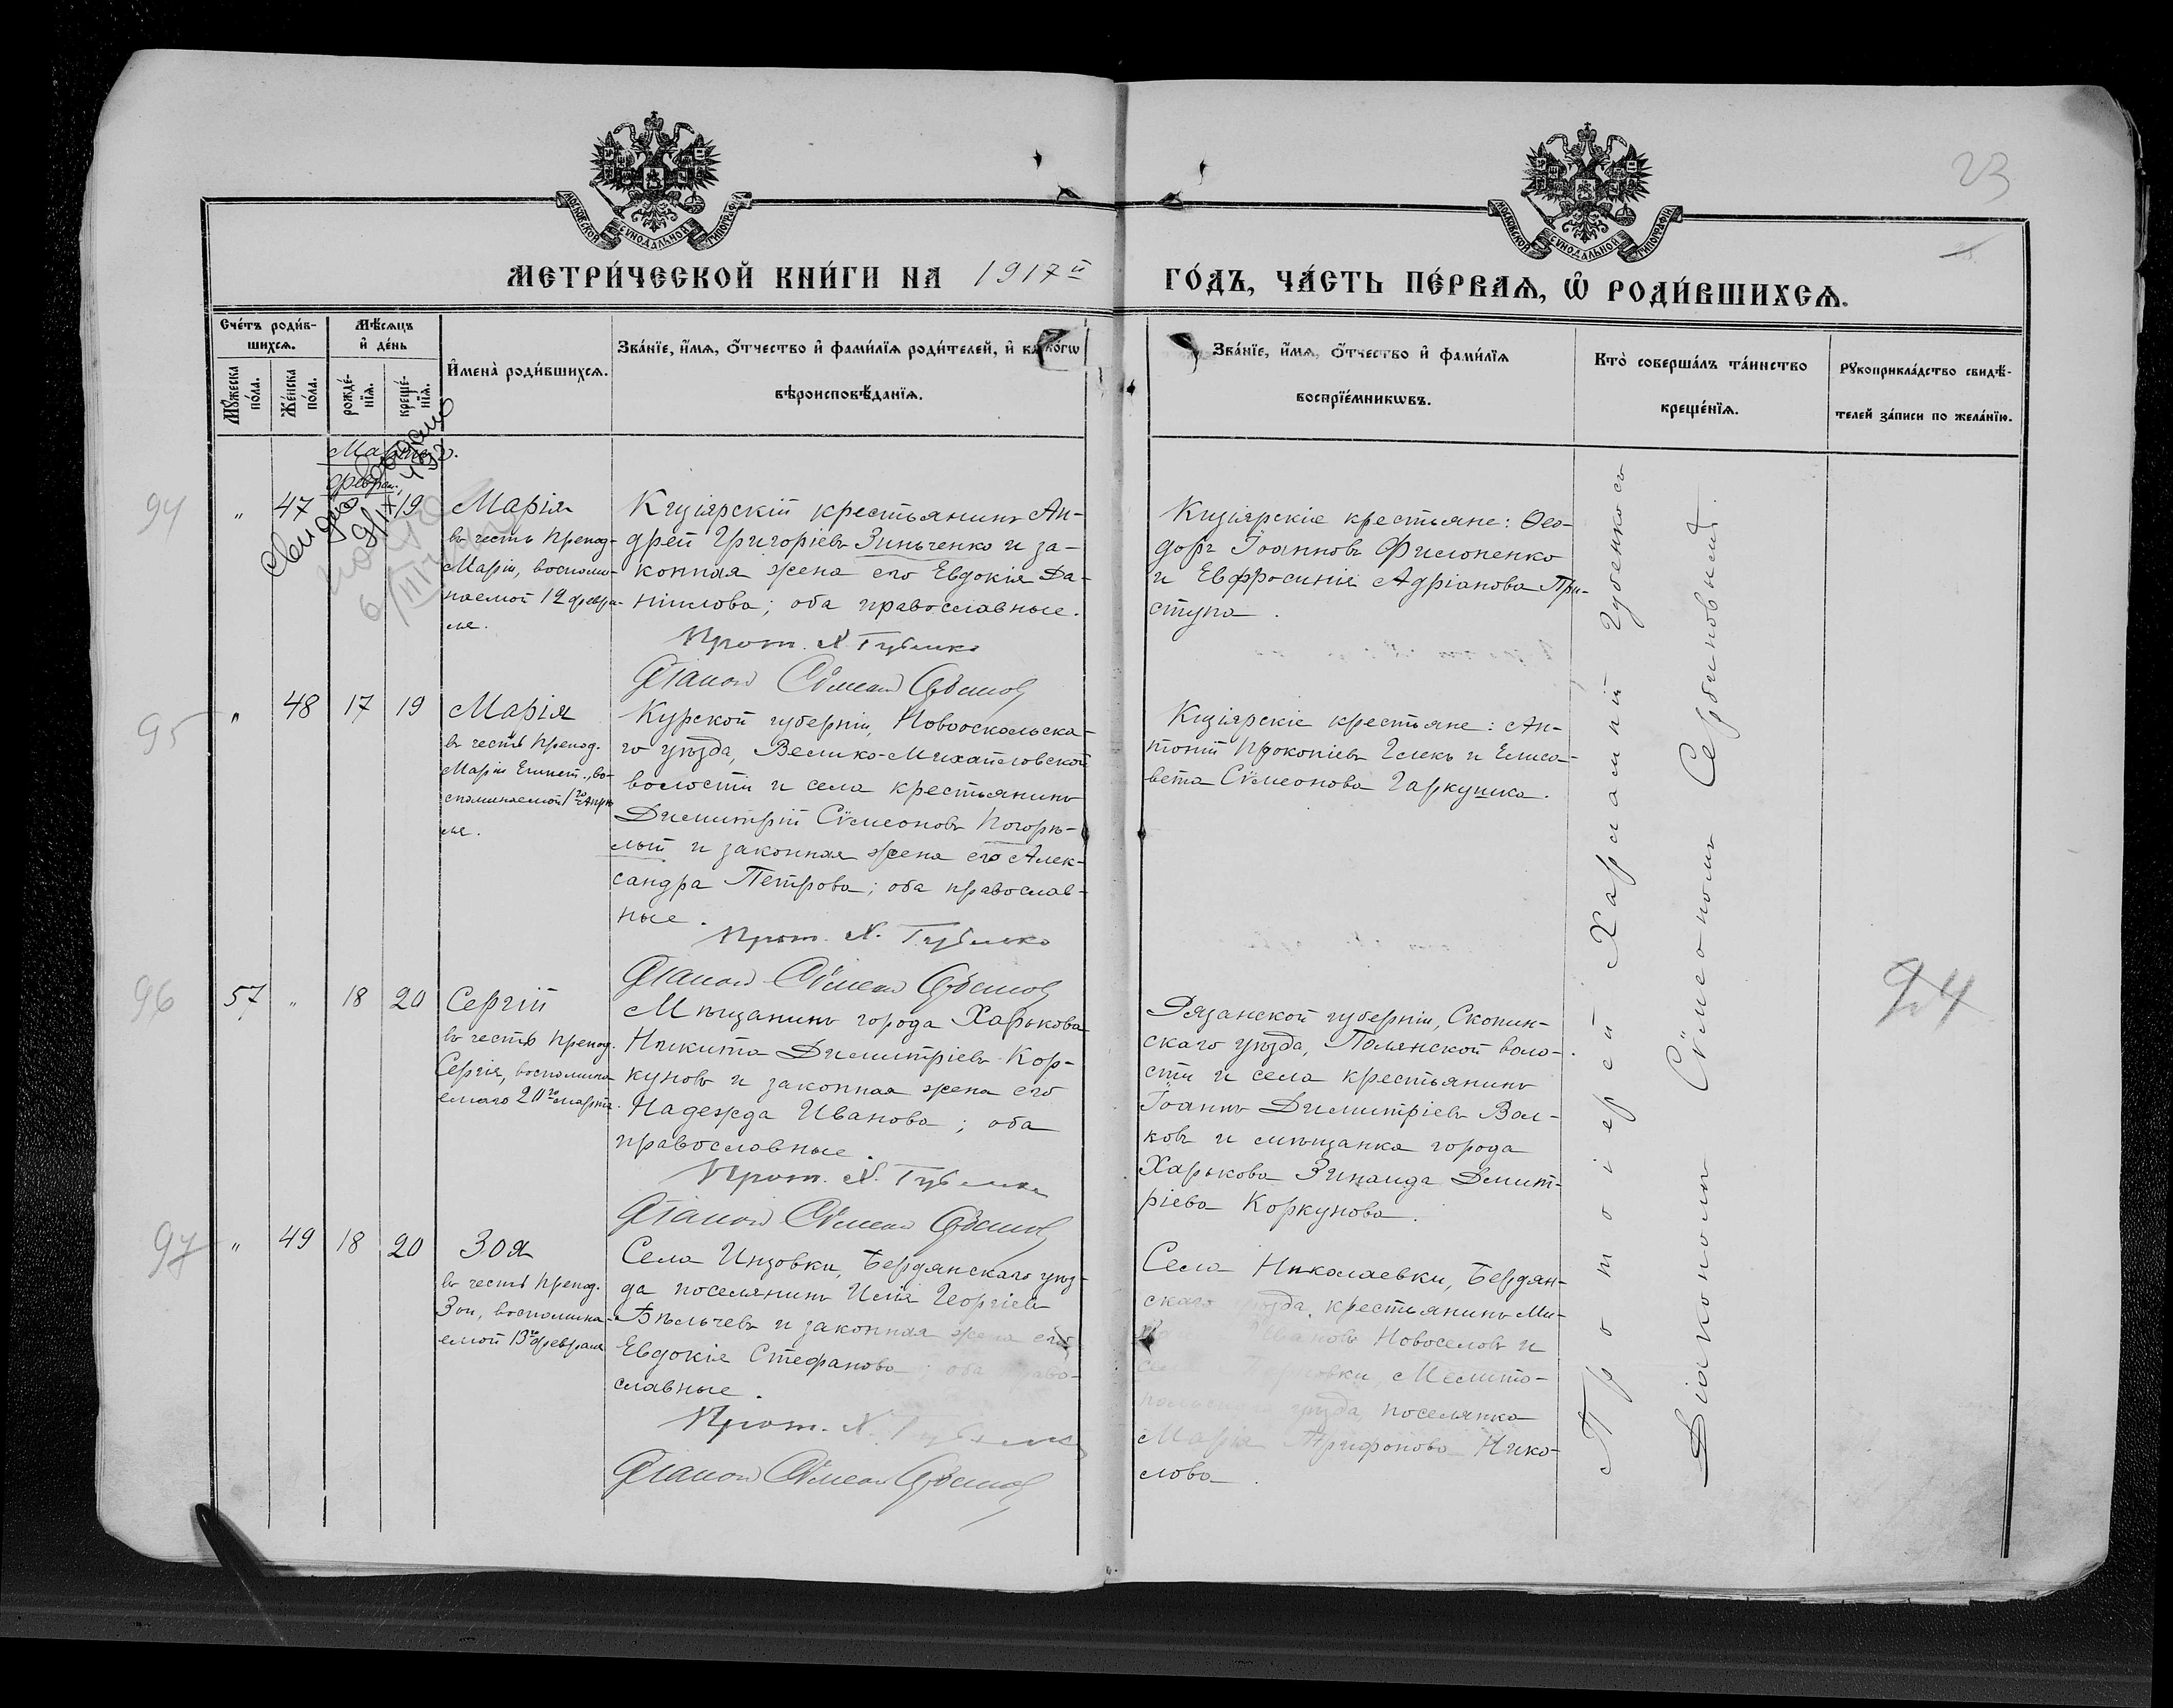 23
МОСКОВСКОЙ СѴНОДАЛЬНОЙ ТИПОГРАФІИ
МОСКОВСКОЙ СѴНОДАЛЬНОЙ ТИПОГРАФІИ
МЕТРИ́ЧЕСКОЙ КНИ́ГИ НА 1917й
ГО́ДЪ, ЧА́СТЬ ПЕ́РВАѦ, Ѡ РОДИ́ВШИХСѦ.
Сче́тъ роди́в-
шихсѧ.
Мꙋ́жеска по́ла.
Же́нска по́ла.
Мѣ́сѧцъ
и҆ де́нь
рожде́-
нїѧ.
креще́-
нїѧ.
И҆мена̀ роди́вшихсѧ.
Зва́нїе, и҆́мѧ, ѻ҆́тчество и҆ фами́лїѧ роди́телей, и҆ како́гѡ
вѣроисповѣ́данїѧ.
Зва́нїе, и҆́мѧ, ѻ҆́тчество и҆ фами́лїѧ
воспрїе́мникѡвъ.
Кто̀ соверша́лъ та́инство
креще́нїѧ.
Рꙋкоприкла́дство свидѣ́-
телей за́писи по жела́нїю.
Феврал.
94
" 47 19
Марія
въ честь препод.
Маріи, воспоми-
наемой 12 февра-
ля.
Кизіярскій крестьянинъ Ан-
дрей Григоріевъ Зиньченко и за-
конная жена его Евдокія Да-
ніилова; оба православные.
Прот. Х. Губенко
Діаконъ Сѵмеон
Кизіярскіе крестьяне: Ѳео-
доръ Іоанновъ Филоненко
и Евфросинія Адріанова При-
ступа.
95
" 48 17 19
Марія
въ честь препод.
Маріи Египет., во-
споминаемой 1го апрѣ-
ля.
Курской губерніи, Новооскольска-
го уѣзда, Велико-Михайловской
волости и села крестьянинъ
Димитрій Сѵмеоновъ Погорѣ-
лый и законная жена его Алек-
сандра Петрова; оба православ-
ные.
Прот. Х. Губенко
Діаконъ Сѵмеон
Кизіярскіе крестьяне: Ан-
тоній Прокопіевъ Гелекъ и Елиса-
вета Сѵмеонова Гаркушка.
96
57 " 18 20
Сергій
въ честь препод.
Сергія, воспомина-
емаго 20го марта.
Мѣщанинъ города Харькова
Никита Димитріевъ Кор-
куновъ и законная жена его
Надежда Иванова; оба
православные.
Прот. Х. Губенко
Діаконъ Сѵмеон
Рязанской губерніи, Скопин-
скаго уѣзда, Полянской воло-
сти и села крестьянинъ
Іоаннъ Димитріевъ Вол-
ковъ и мѣщанка города
Харькова Зинаида Димит-
ріева Коркунова.
97
" 49 18 20
Зоя
въ честь препод.
Зои, воспомина-
емой 13го февраля
Села Инзовки, Бердянскаго уѣз-
да поселянинъ Илія Георгіевъ
Бѣльчевъ и законная жена его
Евдокія Стефанова; оба право-
славные.
Прот. Х. Губенко
Діаконъ Сѵмеон
Села Николаевки, Бердян-
скаго уѣзда, крестьянинъ Ми-
Ивановъ Новоселовъ и
Мелито-
польскаго уѣзда, поселянка
Марія Трифонова Нико-
лова.
Протоіерей Харлампій Губенко съ
Діакономъ Сѵмеономъ Сербиновымъ.
94